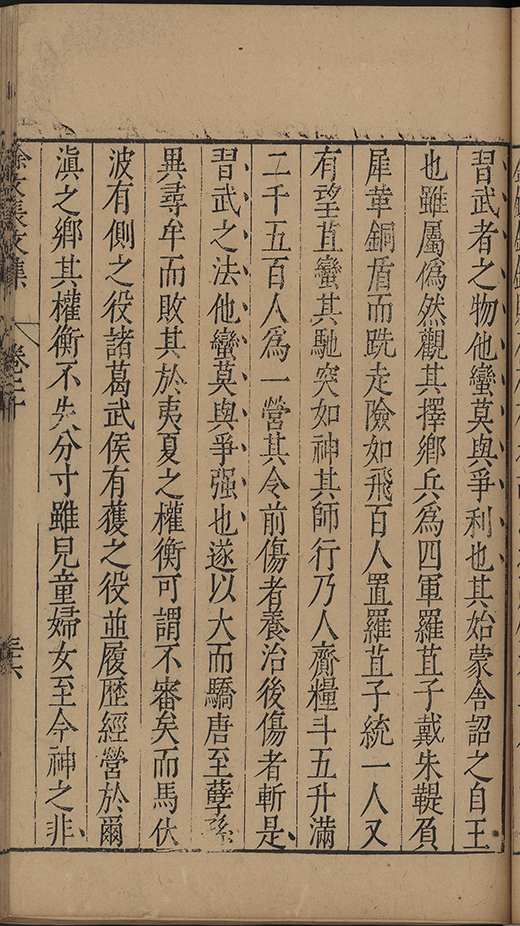 習武者之物他蠻莫與爭利也其始蒙舍詔之自王
也雖屬僞然觀其擇鄉兵爲四軍羅苴子戴朱鞮負
犀革銅盾而跣走險如飛百人置羅苴子統一人又
有望苴蠻其馳突如神其師行乃人齎糧斗五升滿
二千五百人爲一營其令前傷者養治後傷者斬是
習武之法他蠻莫與爭强也遂以大而驕唐至孽孫
異尋牟而敗其於夷夏之權衡可謂不審矣而馬伏
波有側之役諸葛武侯有蒦之役並履歷經營於爾
滇之鄉其權衡不失分寸雖兒童婦女至今神之非
徐文長文集
卷二十
三六